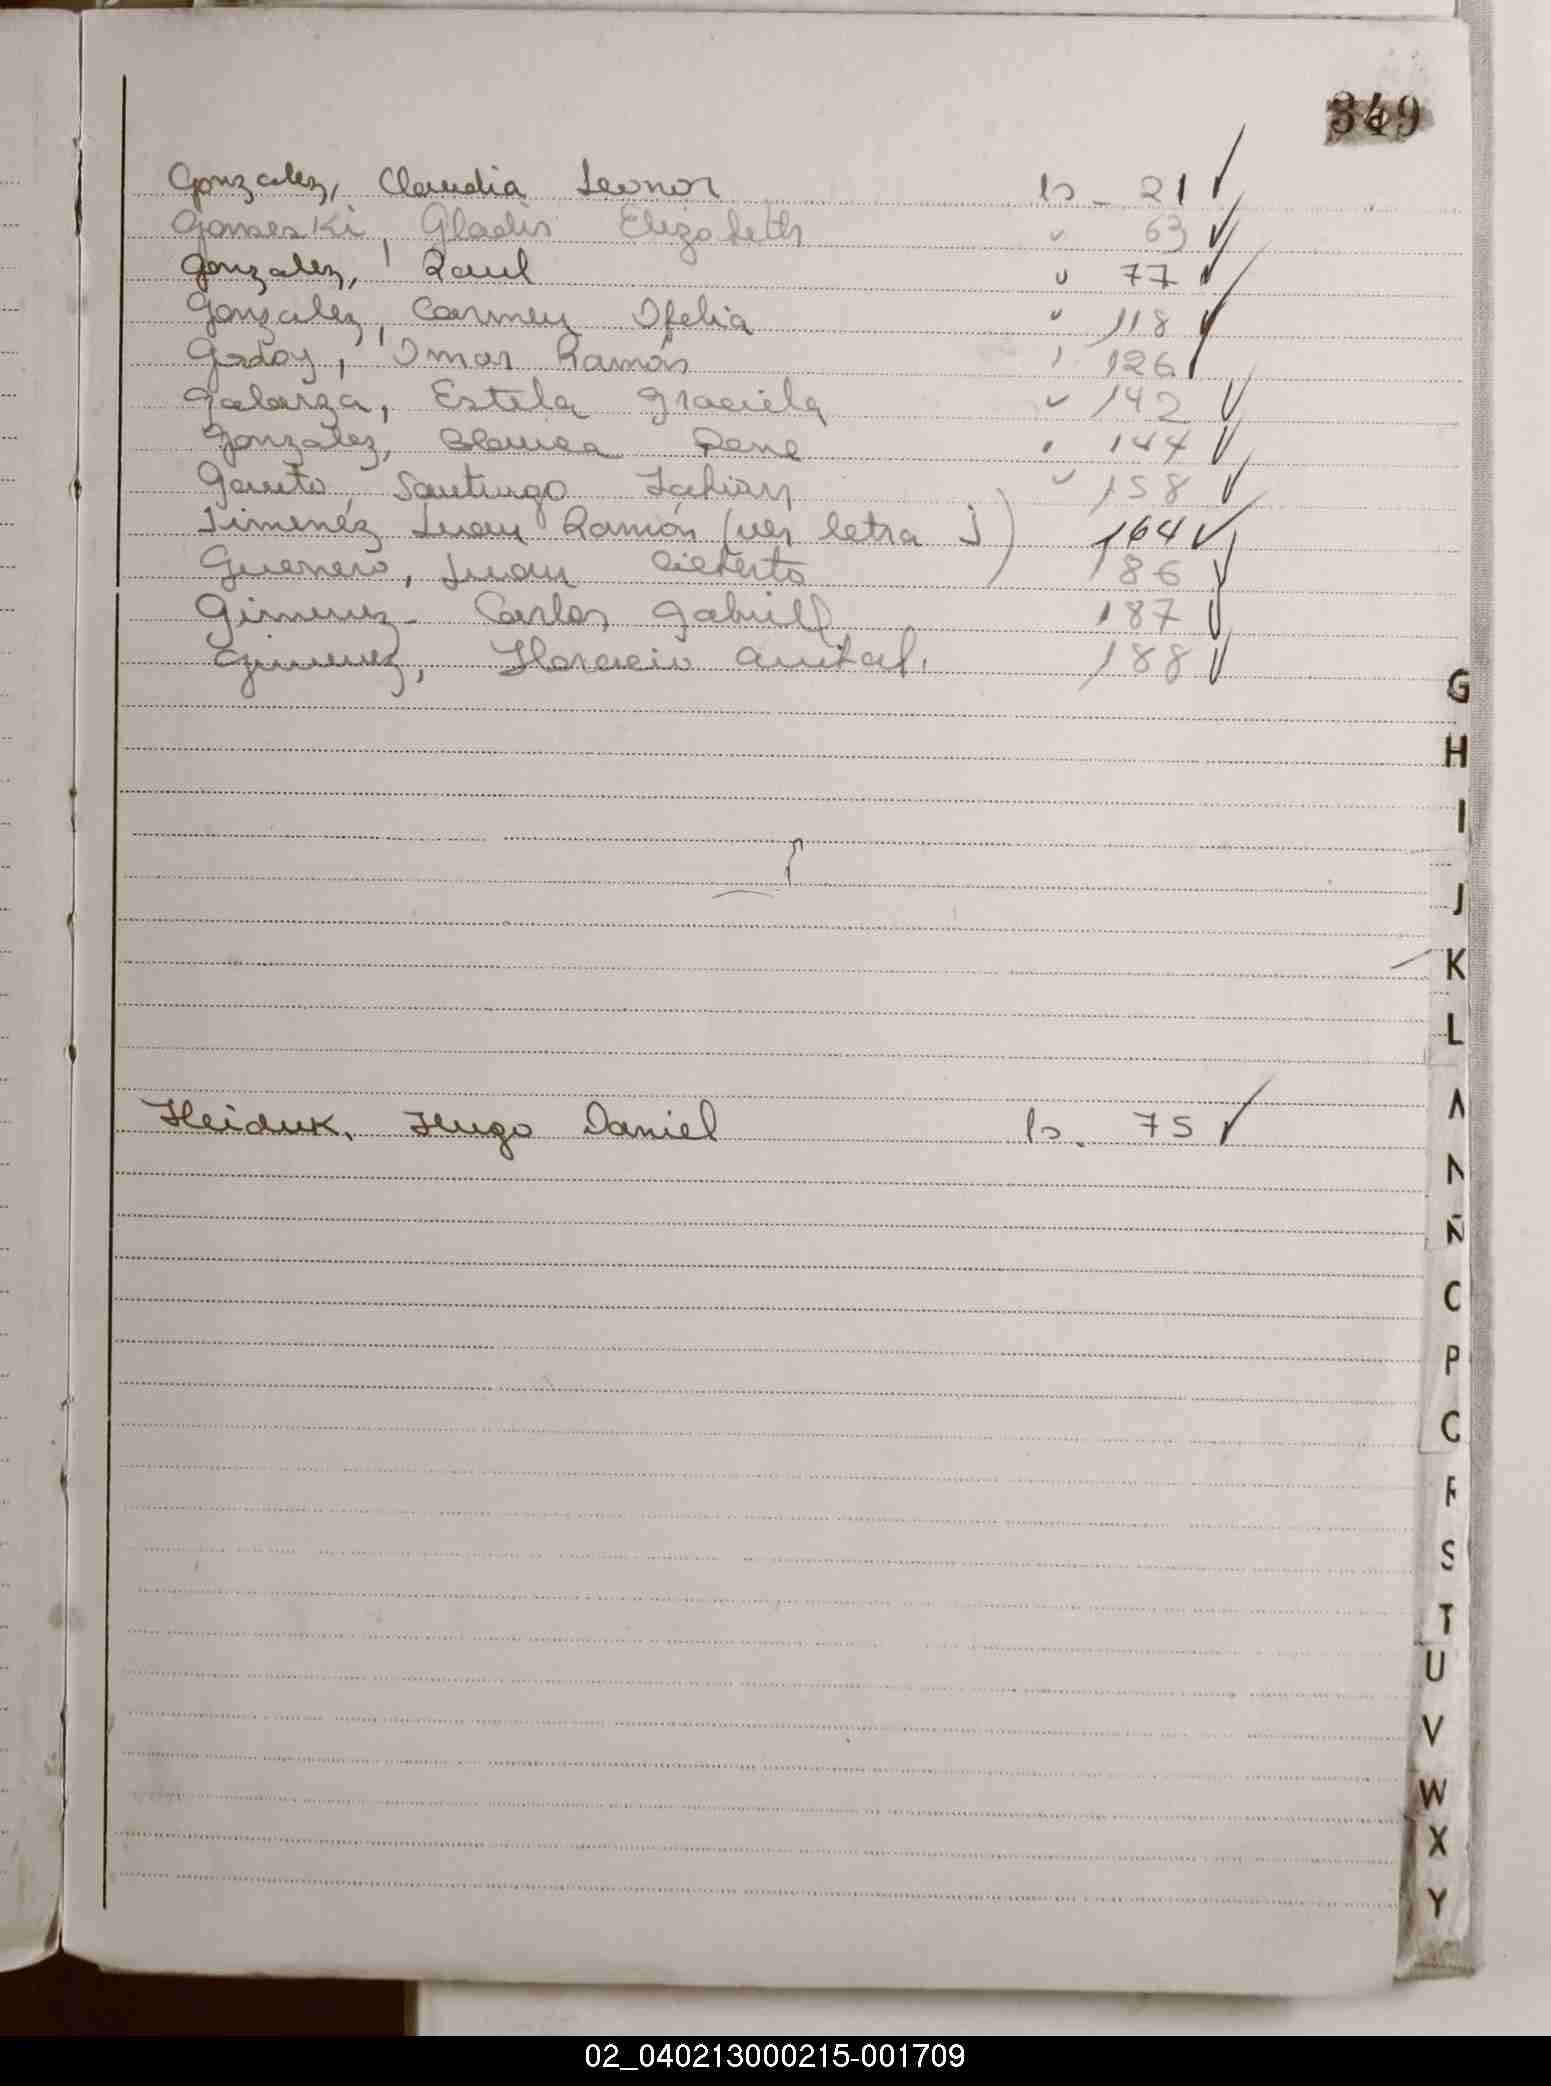 349
Gonzalez, Claudia Leonor fo_ 21 ✓
Gomeski, Gladis Elizabeth " 63 ✓
Gonzalez, Raul " 77 ✓
Gonzalez, Carmen Ofelia " 118 ✓
Godoy, Omar Ramón " 126 ✓
Galarza, Estela Graciela " 142 ✓
Gonzalez, Blanca Rene " 144 ✓
Santiago Fabian " 158 ✓
Jimenéz Juan Ramón (ver letra J) 164 ✓
Guerrero, Juan 186 ✓
Gimenez - Carlos Gabriel 187 ✓
Gimenez, Horacio Anibal. 188 ✓
G
H
I
J
K
L
Heiduk, Hugo Daniel fo. 75 ✓
N
Ñ
P
S
T
U
V
W
X
Y
02_040213000215-001709